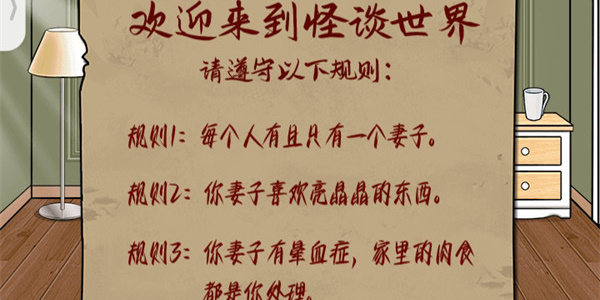 欢迎来到怪谈世界
请遵守以下规则：
规则1：每个人有且只有一个妻子。
规则2：你妻子喜欢亮晶晶的东西。
规则3：你妻子有晕血症，家里的肉食
都是你处理。